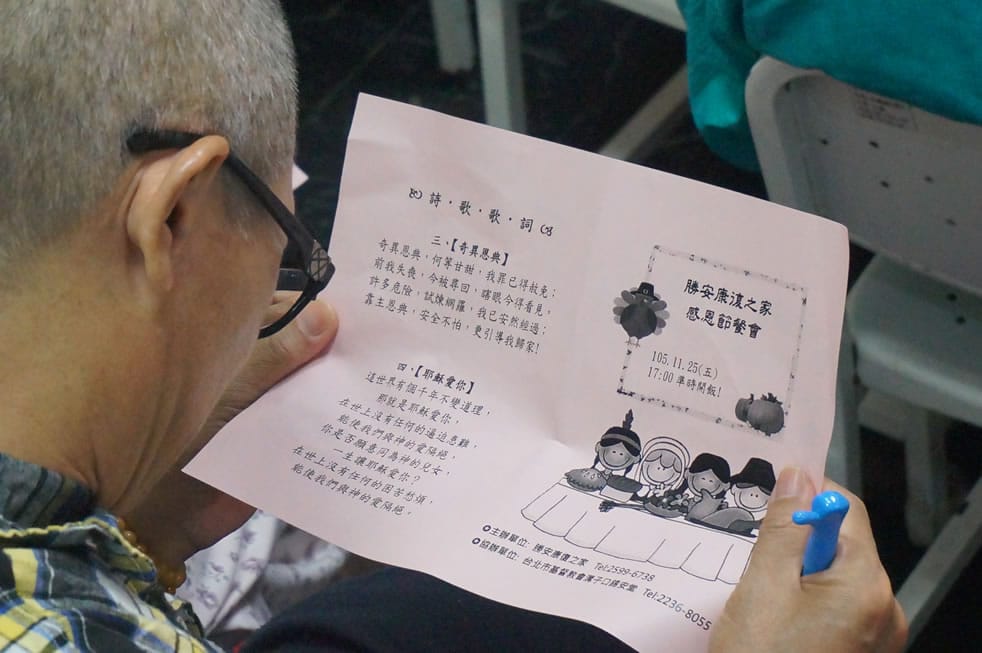 詩·歌·歌·詞
三、【奇異恩典】
奇異恩典，何等甘甜，我罪已得赦免；
前我失喪，今被尋回，瞎眼今得看見，
許多危險，試煉網羅，我已安然經過；
靠主恩典，安全不怕，更引導我歸家！
四、【耶穌愛你】
這世界有個千年不變道理，
那就是耶穌愛你，
在世上沒有任何的逼迫患難，
能使我們與神的愛隔絕，
你是否願意同為神的兒女，
一生讓耶穌愛你？
在世上沒有任何的困苦愁煩，
能使我們與神的愛隔絕，
勝安康復之家
感恩節餐會
105.11.25(五)
17:00 準時開飯!
主辦單位: 勝安康復之家 Tel:2599-6738
協辦單位: 台北市基督教會溪子口錫安堂 Tel:2236-8055